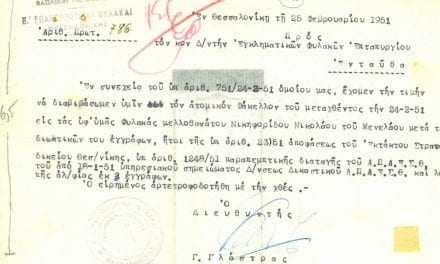 Ἐν Θεσσαλονίκῃ τῇ 25 Φεβρουαρίου 1951
Ἀριθ. Πρωτ. 786
Πρός
τόν κον Δ/ντήν Ἐγκληματικῶν Φυλακῶν Ἑπταπυργίου
Ἐνταῦθα
Ἐν συνεχείᾳ τοῦ ὑπ ἀριθ. 751/24-2-51 ὁμοίου μας, ἔχομεν τήν τιμήν
νά διαβιβάσωμεν ὑμῖν τόν ἀτομικόν φάκελλον τοῦ μεταχθέντος τήν 24-2-51
εἰς τάς ὑφ' ὑμᾶς Φυλακάς μελλοθανάτου Νικηφορίδου Νικολάου τοῦ Μενελάου μετά τ
διωτικῶν του ἐγγράφων, ἤτοι τῆς ὑπ ἀριθ. ἀποφάσεως τοῦ Ἐκτάκτου Στρατ
δικείου Θεσ/νίκης, ὑπ ἀριθ. 1248/51 παραπεμπτικῆς διαταγῆς τοῦ
τοῦ ἀπό 18-1-51 ὑπηρεσιακοῦ σημειώματος Δ/νσεως Δικαστικοῦ
τῆς ἀλ/φίας ἐκ ἐγγράφων.
Ὁ εἰρημένος ἀρτετροφοδοτήθη μέ τήν χθές .-
Ὁ
Διευθυντής
Γ. Γλάστρας